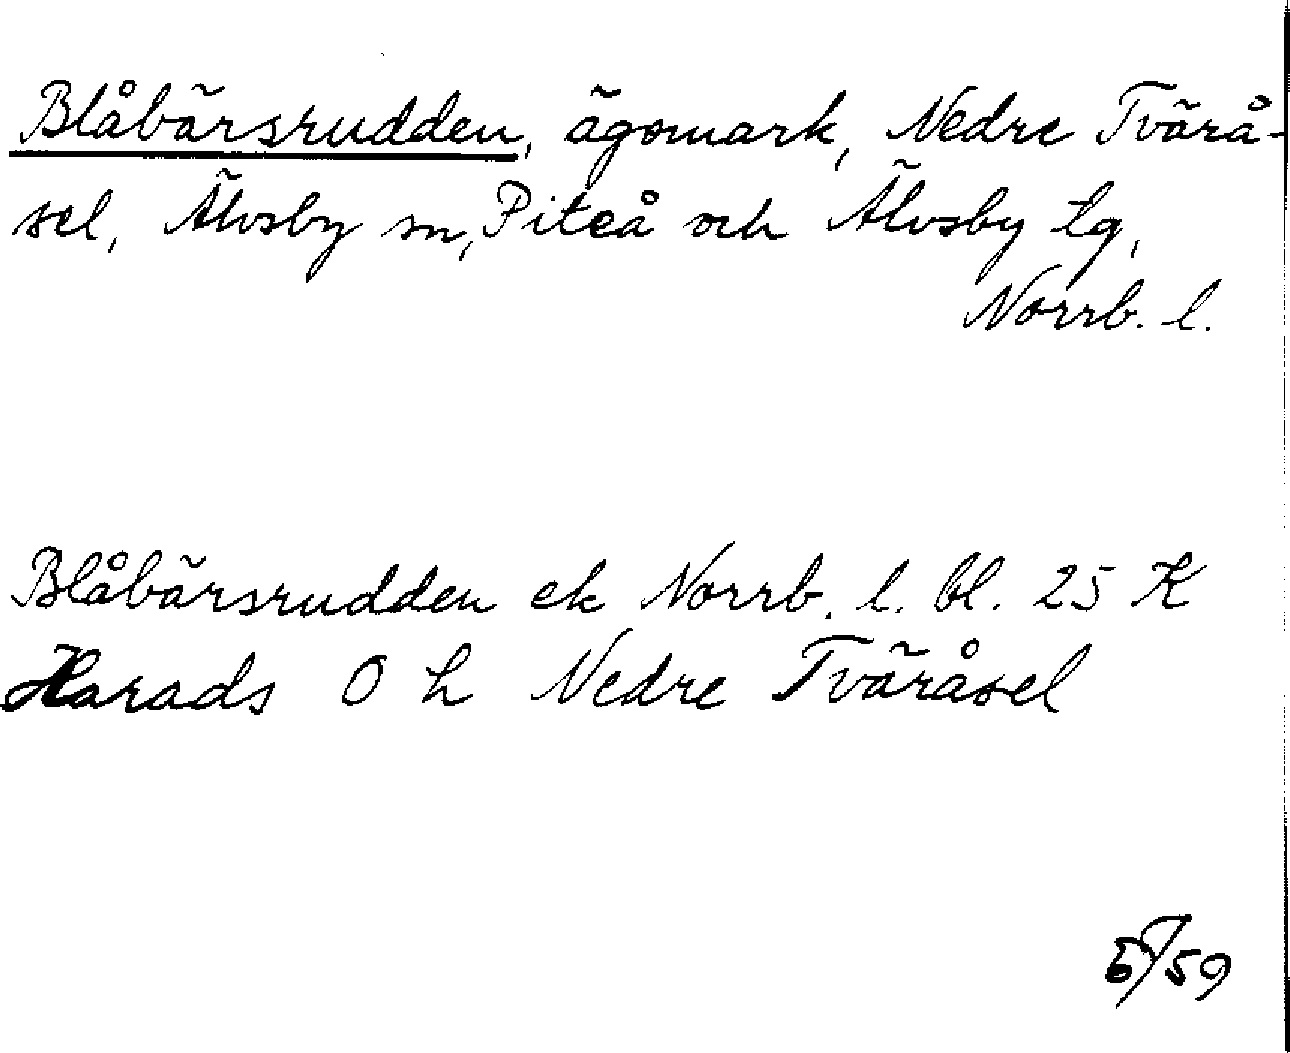 Blåbärsrudden, ägomark, Nedre Tvärå-
sel, Älvsby sn, Piteå och Älvsby tg,
Norrb. l.
Blåbärsrudden ek Norrb. l. bl. 25 K
Harads O h Nedre Tväråsel
/59